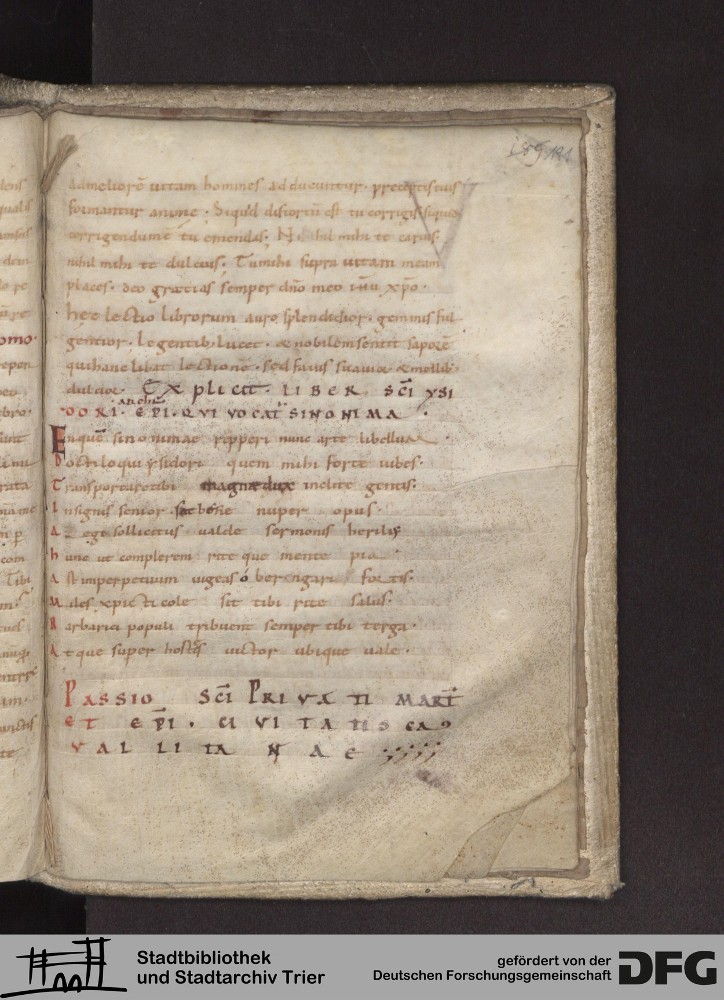 admeliorē uitam homines adducuntur. preceptis tuis
formantur anime. Siquid distortū est tu corrigis siquid
corrigendumē tu emendas. Nihil mihi te carius.
nihil mihi te dulcius. Tu mihi supra uitam meam
places. deo gratias semper dño meo ihu xpo.
hec lectio librorum auro splendidior. gemmis ful
gentior. Legentib; lucet. & nobilem sentit saporē
qui hanc libat lectionē. sed fauis suauior. & melle
dulcior. Explicit. LIBER. SCĪ YSI
DORI. archi EPI. QUI VOCAT SINONIMA.
Enquē sinonimae repperi nunc arte libellum
Doctiloqui ysidori quem mihi forte iubes.
Transportare tibi magnae dux inclite gentis.
Insignis senior, nuper opus.
Lege sollicitus ualde sermonis herilis
hunc ut complerem rite que mente pia.
Ast imperpetuum uigeas ó berengari fortis.
Miles xpicticole sit tibi rite salus.
Barbarici populi tribuent semper tibi terga.
Atque super hostes uictor ubique uale.
PASSIO SCĪ PRIVATI MART
ET EPI. CIVITATIS GA
VALLITANAE
159 121
Stadtbibliothek
und Stadtarchiv Trier
gefördert von der
Deutschen Forschungsgemeinschaft
DFG